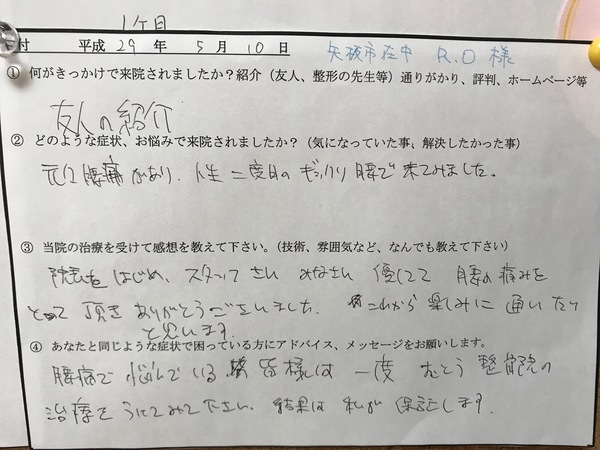 1ヶ目
付 平成 29 年 5 月 10 日 矢板市在中 R.O 様
① 何がきっかけで来院されましたか？紹介（友人、整形の先生等）通りがかり、評判、ホームページ等
友人の紹介
② どのような症状、お悩みで来院されましたか？（気になっていた事、解決したかった事）
元々腰痛があり、人生二度目のぎっくり腰で来てみました。
③ 当院の治療を受けて感想を教えて下さい。（技術、雰囲気など、なんでも教えて下さい）
院長をはじめ、スタッフさん みなさん 優しくて 腰の痛みを
とって 頂き ありがとうございました。 これから 楽しみに 通いたい
と思います。
④ あなたと同じような症状で困っている方にアドバイス、メッセージをお願いします。
腰痛で 悩んでいる 皆様は 一度 むとう 整骨院の
治療をうけてみて下さい。 結果は 私が 保証します。